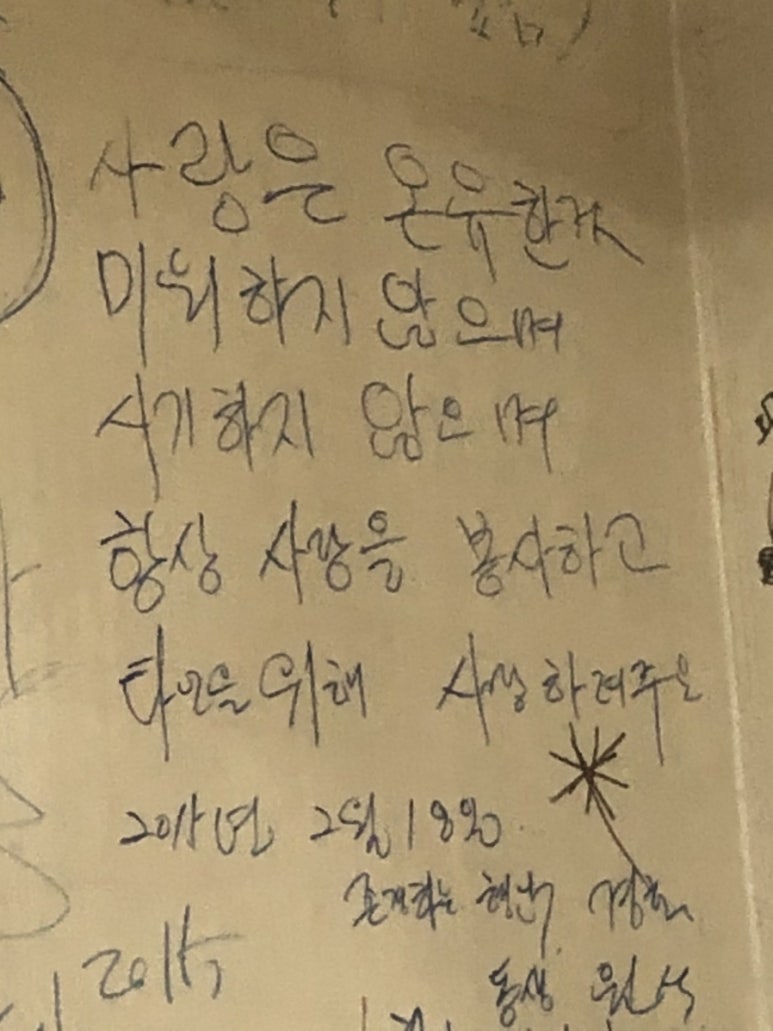 사랑은 온유한것
미워하지 않으며
시기하지 않으며
항상 사랑을 봉사하고
타인을 위해 사랑하려
2015년 2월 18일
존경하는
2015
동생 원석